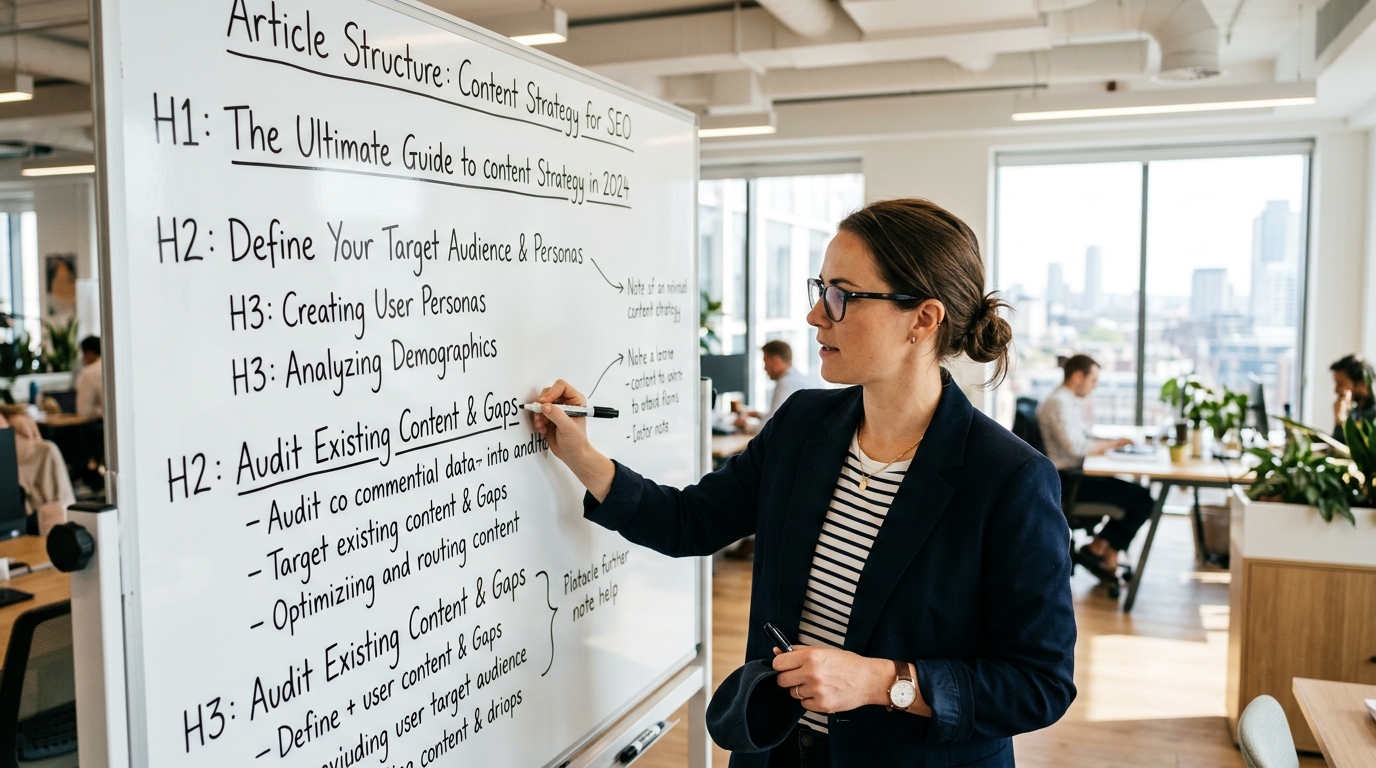 Article Structure: Content Strategy for SEO
H1: The Ultimate Guide to content Strategy in 2024
H2: Define Your Target Audience & Personas
Note of an
content strategy
H3: Creating User Personas
H3: Analyzing Demographics
Note a
- content to
to
H2: Audit Existing Content & Gaps
- note
- Audit co commential data- into
- Target existing content & Gaps
- Optimiziing and routing content
H3: Audit Existing Content & Gaps
further
note help
- Define + user content & Gaps
user target audience
content & driops